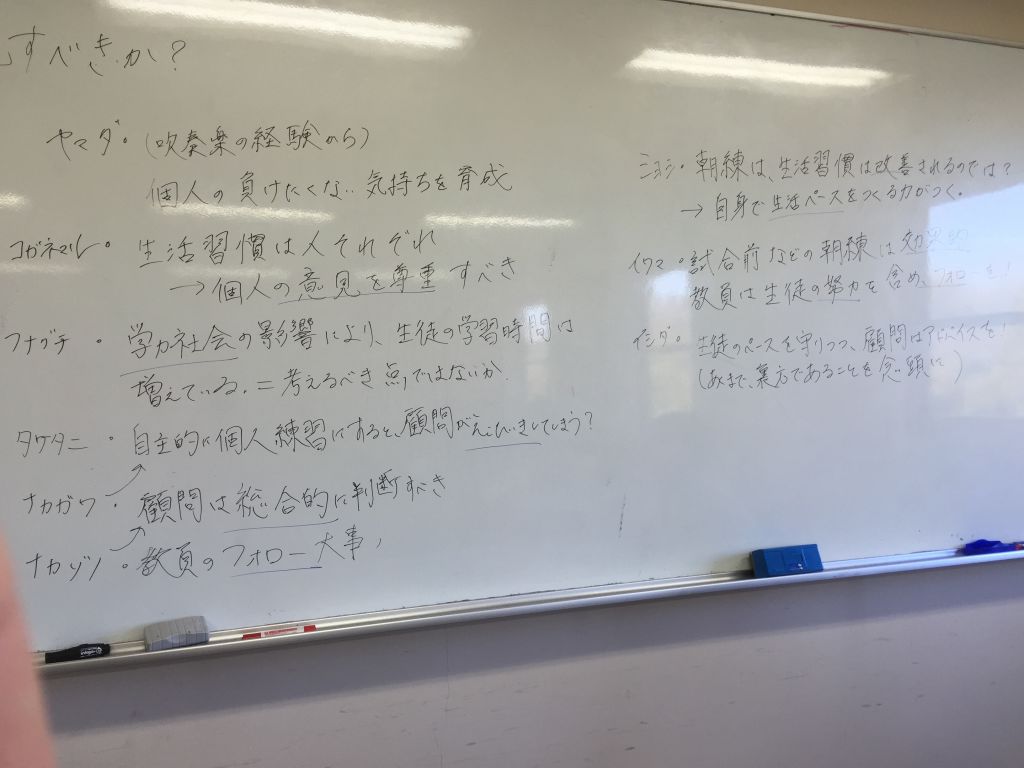 すべきか?
ヤマダ。(吹奏楽の経験から)
個人の負けたくない気持ちを育成
コガネマル。生活習慣は人それぞれ
→個人の意見を尊重すべき
フナグチ。学力社会の影響により、生徒の学習時間は
増えている。=考えるべき点ではないか。
タワタニ。自主的に個人練習にすると、顧問がえこひいきしてしまう?
ナカガワ。顧問は総合的に判断すべき
ナカヅツ。教員のフォロー大事!
ミヨシ。朝練は、生活習慣は改善されるのでは?
→自身で生活ペースをつくる力がつく。
イワマ。試合前などの朝練は効果的
教員は生徒の努力を含め、フォローを!
イシダ。生徒のペースを守りつつ、顧問はアドバイスを!
(あくまで、裏方であることを念頭に)